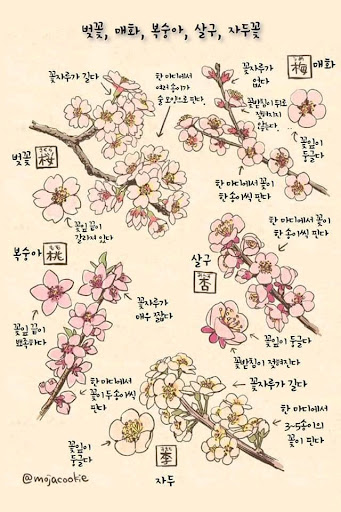 벚꽃, 매화, 복숭아, 살구, 자두꽃
꽃자루가 길다
한 마디에서
여러 송이가
술 모양으로 핀다.
벚꽃
桜
꽃잎 끝이
갈라져 있다
꽃자루가
없다
梅
매화
꽃받침이 뒤로
젖혀지지
않는다.
꽃잎이
둥글다
한 마디에서 꽃이
한 송이씩 핀다
복숭아
桃
もも
꽃자루가
매우 짧다
꽃잎 끝이
뾰족하다
한 마디에서
꽃이 두송이씩
핀다
살구
杏
한 마디에서 꽃이
한 송이씩 핀다
꽃잎이 둥글다
꽃받침이 젖혀진다
꽃자루가 길다
한 마디에서
3~5송이의
꽃이 핀다
꽃잎이
둥글다
李
자두
@mojacookie